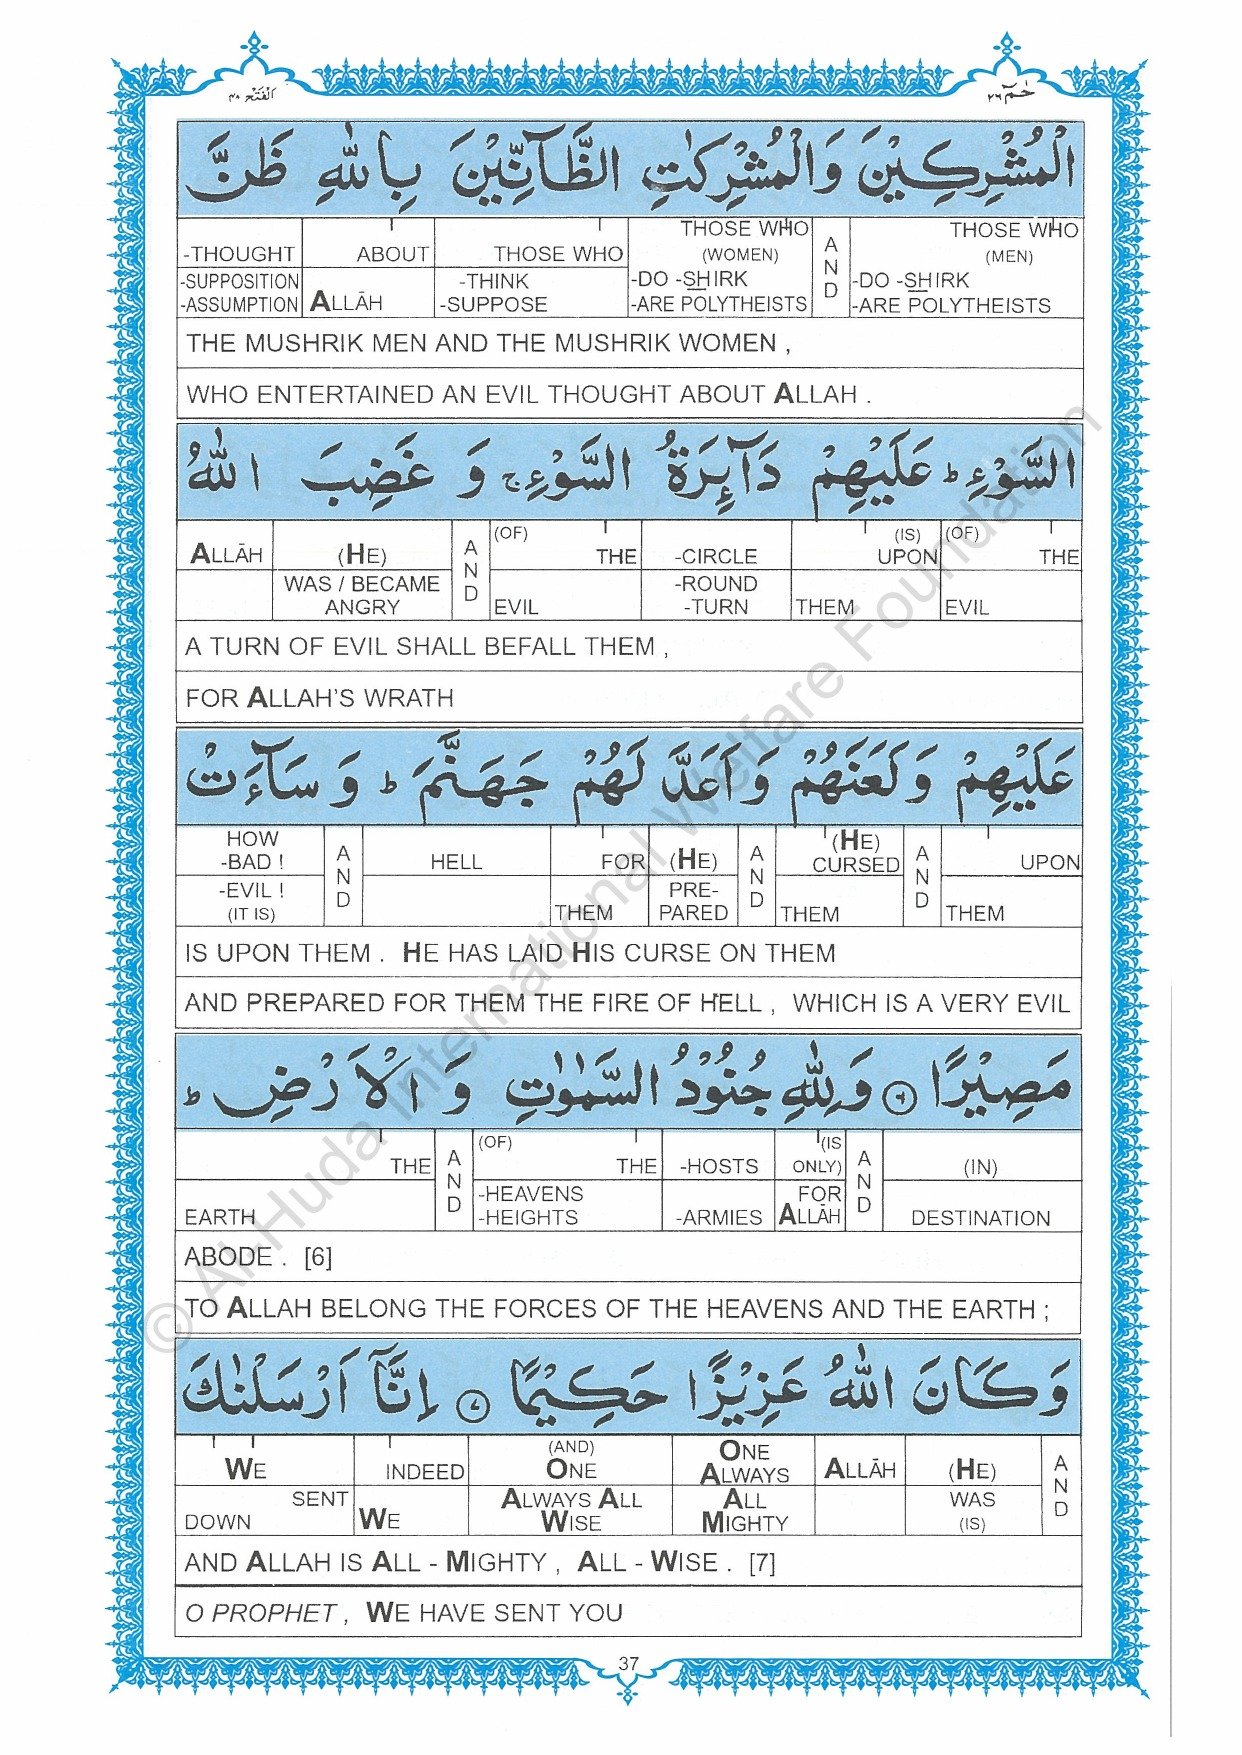 حٰمٓ ٢٦
اَلْفَتْح ٤٨
الْمُشْرِكِيْنَ وَالْمُشْرِكٰتِ الظَّآنِّيْنَ بِاللّٰهِ ظَنَّ
-THOUGHT ABOUT THOSE WHO THOSE WHO (WOMEN) AND THOSE WHO (MEN)
-SUPPOSITION -ASSUMPTION ALLĀH -THINK -SUPPOSE -DO -SHIRK -ARE POLYTHEISTS -DO -SHIRK -ARE POLYTHEISTS
THE MUSHRIK MEN AND THE MUSHRIK WOMEN ,
WHO ENTERTAINED AN EVIL THOUGHT ABOUT ALLAH .
السَّوْءِ ؕ عَلَيْهِمْ دَآئِرَةُ السَّوْءِ ۚ وَ غَضِبَ اللّٰهُ
ALLĀH (HE) AND (OF) THE -CIRCLE (IS) UPON (OF) THE
WAS / BECAME ANGRY EVIL -ROUND -TURN THEM EVIL
A TURN OF EVIL SHALL BEFALL THEM ,
FOR ALLAH'S WRATH
عَلَيْهِمْ وَلَعَنَهُمْ وَاَعَدَّ لَهُمْ جَهَنَّمَ ؕ وَ سَآءَتْ
HOW -BAD ! AND HELL FOR (HE) AND (HE) CURSED AND UPON
-EVIL ! (IT IS) THEM PRE- PARED THEM THEM
IS UPON THEM . HE HAS LAID HIS CURSE ON THEM
AND PREPARED FOR THEM THE FIRE OF HELL , WHICH IS A VERY EVIL
مَصِيْرًا ٦ وَلِلّٰهِ جُنُوْدُ السَّمٰوٰتِ وَ الْاَرْضِ ؕ
THE AND (OF) THE -HOSTS (IS ONLY) AND (IN)
EARTH -HEAVENS -HEIGHTS -ARMIES FOR ALLĀH DESTINATION
ABODE . [6]
TO ALLAH BELONG THE FORCES OF THE HEAVENS AND THE EARTH ;
وَكَانَ اللّٰهُ عَزِيْزًا حَكِيْمًا ٧ اِنَّآ اَرْسَلْنٰكَ
WE INDEED (AND) ONE ONE ALWAYS ALLĀH (HE) AND
SENT DOWN WE ALWAYS ALL WISE ALL MIGHTY WAS (IS)
AND ALLAH IS ALL - MIGHTY , ALL - WISE . [7]
O PROPHET , WE HAVE SENT YOU
37
© Al-Huda International Welfare Foundation